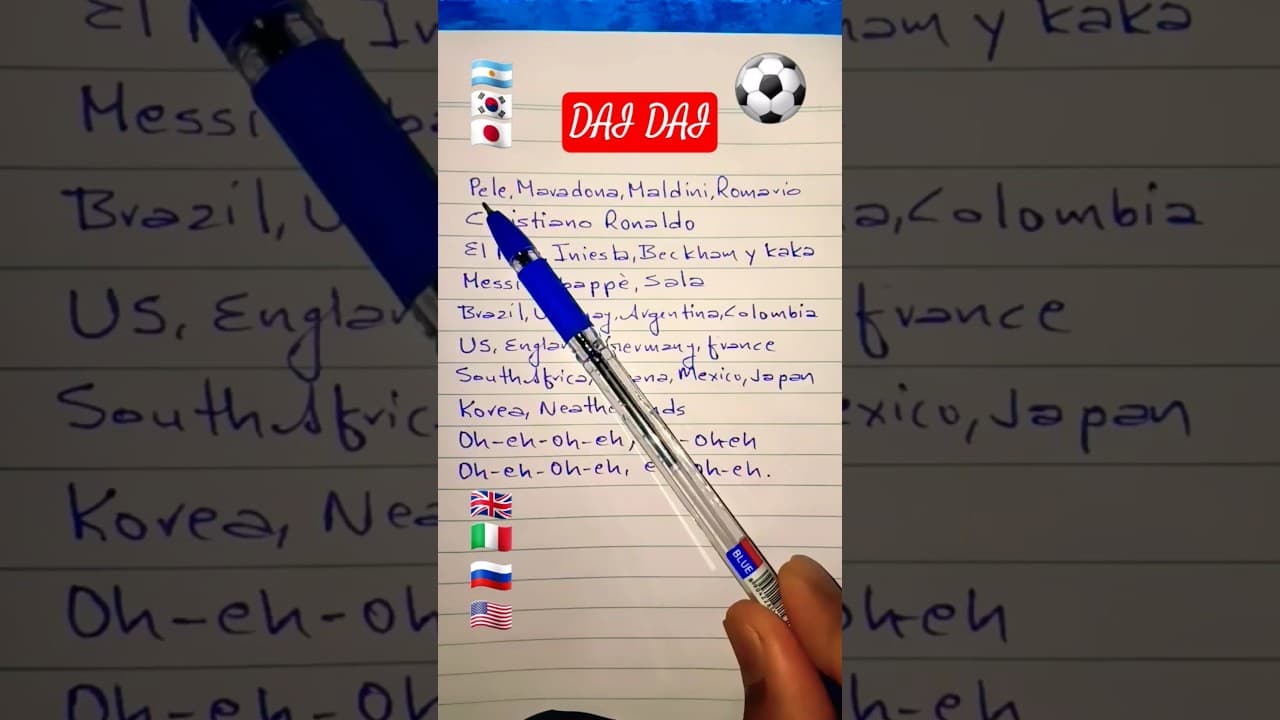 DAI DAI
Pele, Maradona, Maldini, Romario
Cristiano Ronaldo
El, Iniesta, Beckham y kaka
Messi, Sala
Brazil, Argentina, Colombia
US, Germany, france
South Africa, Mexico, Japan
Korea,
Oh-eh-oh-eh, -oh-eh
Oh-eh-Oh-eh, oh-eh.
BLUE